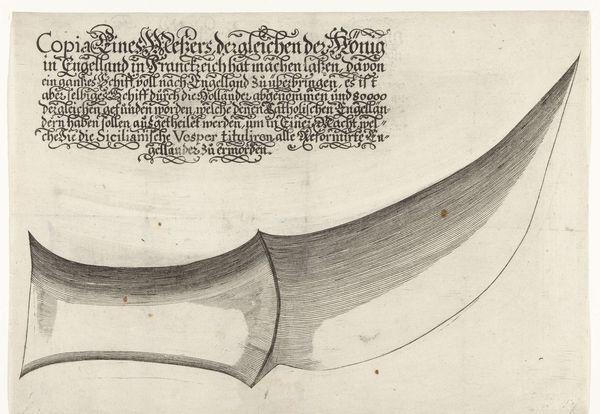 Copia Eines Meßers, dergleichen der König
in Engelland in Franckreich hat machen laßen, davon
ein gantzes Schiff voll nach Engelland zu überbringen, es ist
aber selbige Schiff durch die Holländer abgenommen und 80000
dergleichen gefunden worden, welche denen Catholischen Engellän
dern haben sollen ausgetheilet werden, um in Einer Nacht, wel-
che Sie die Sicilianische Vosper tituliren alle Reformirte En-
gelländer zu ermorden.